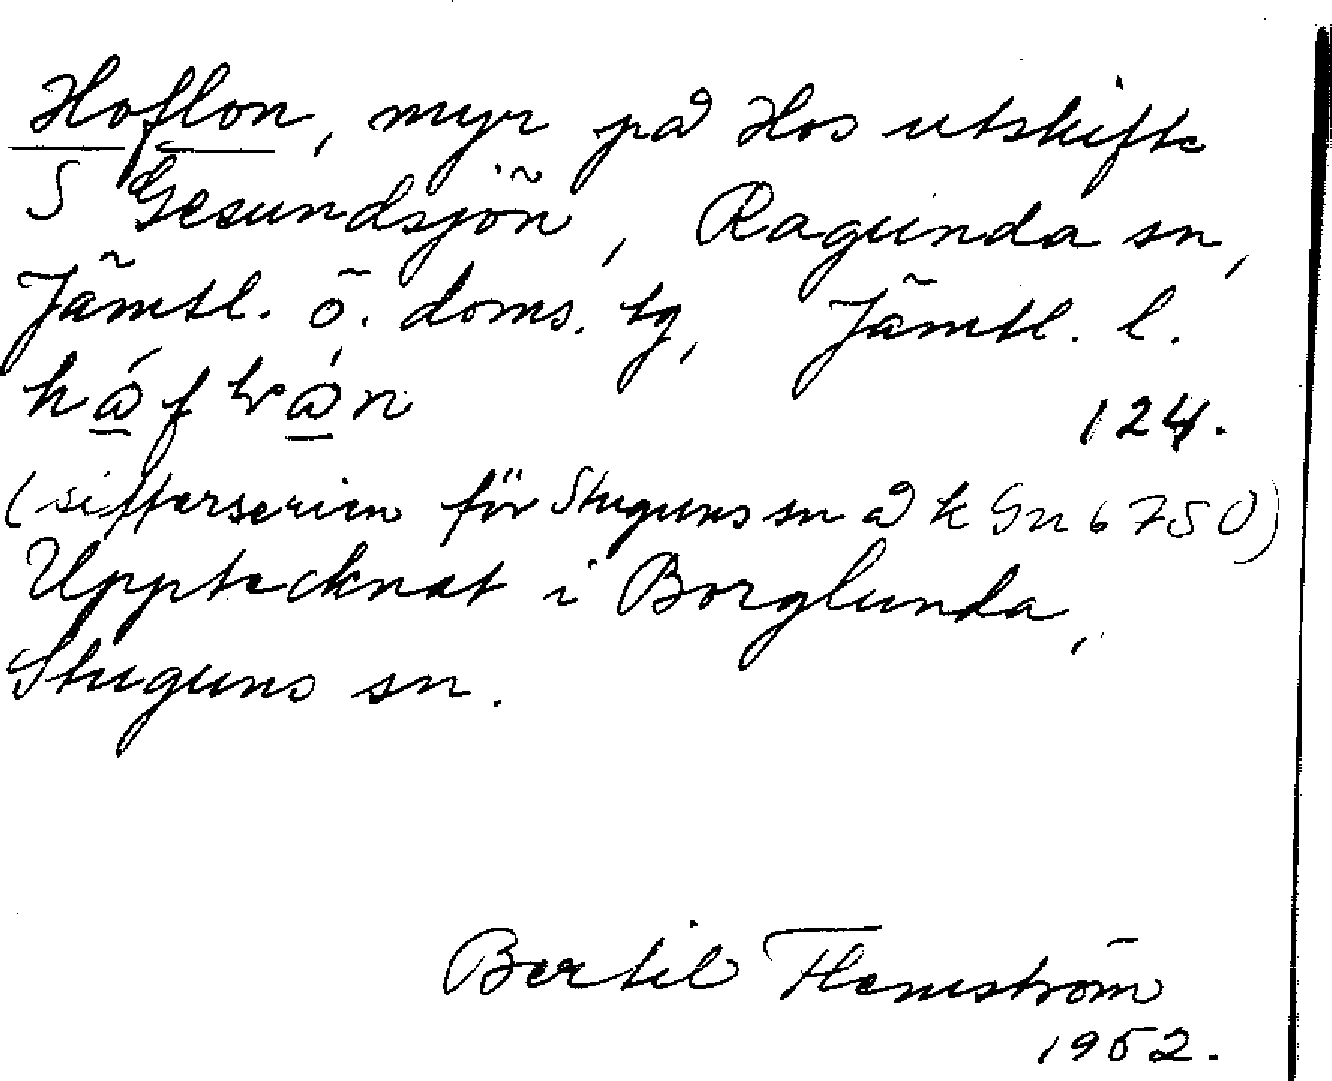 Hoflon, myr på Hos utskifte
S Gesundsjön, Ragunda sn,
Jämtl. ö. doms. tg, Jämtl. l.
124.
(sifferserien för Stuguns sn å k Gn 6750)
Upptecknat i Borglunda,
Stuguns sn.
Bertil Flemström
1952.